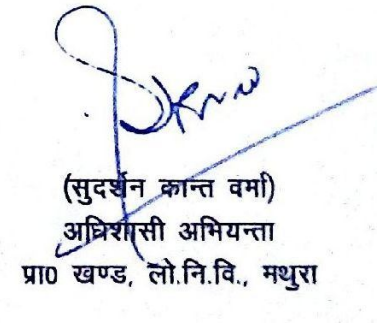 (सुदर्शन कान्त वर्मा)
अधिशासी अभियन्ता
प्रा0 खण्ड, लो.नि.वि., मथुरा